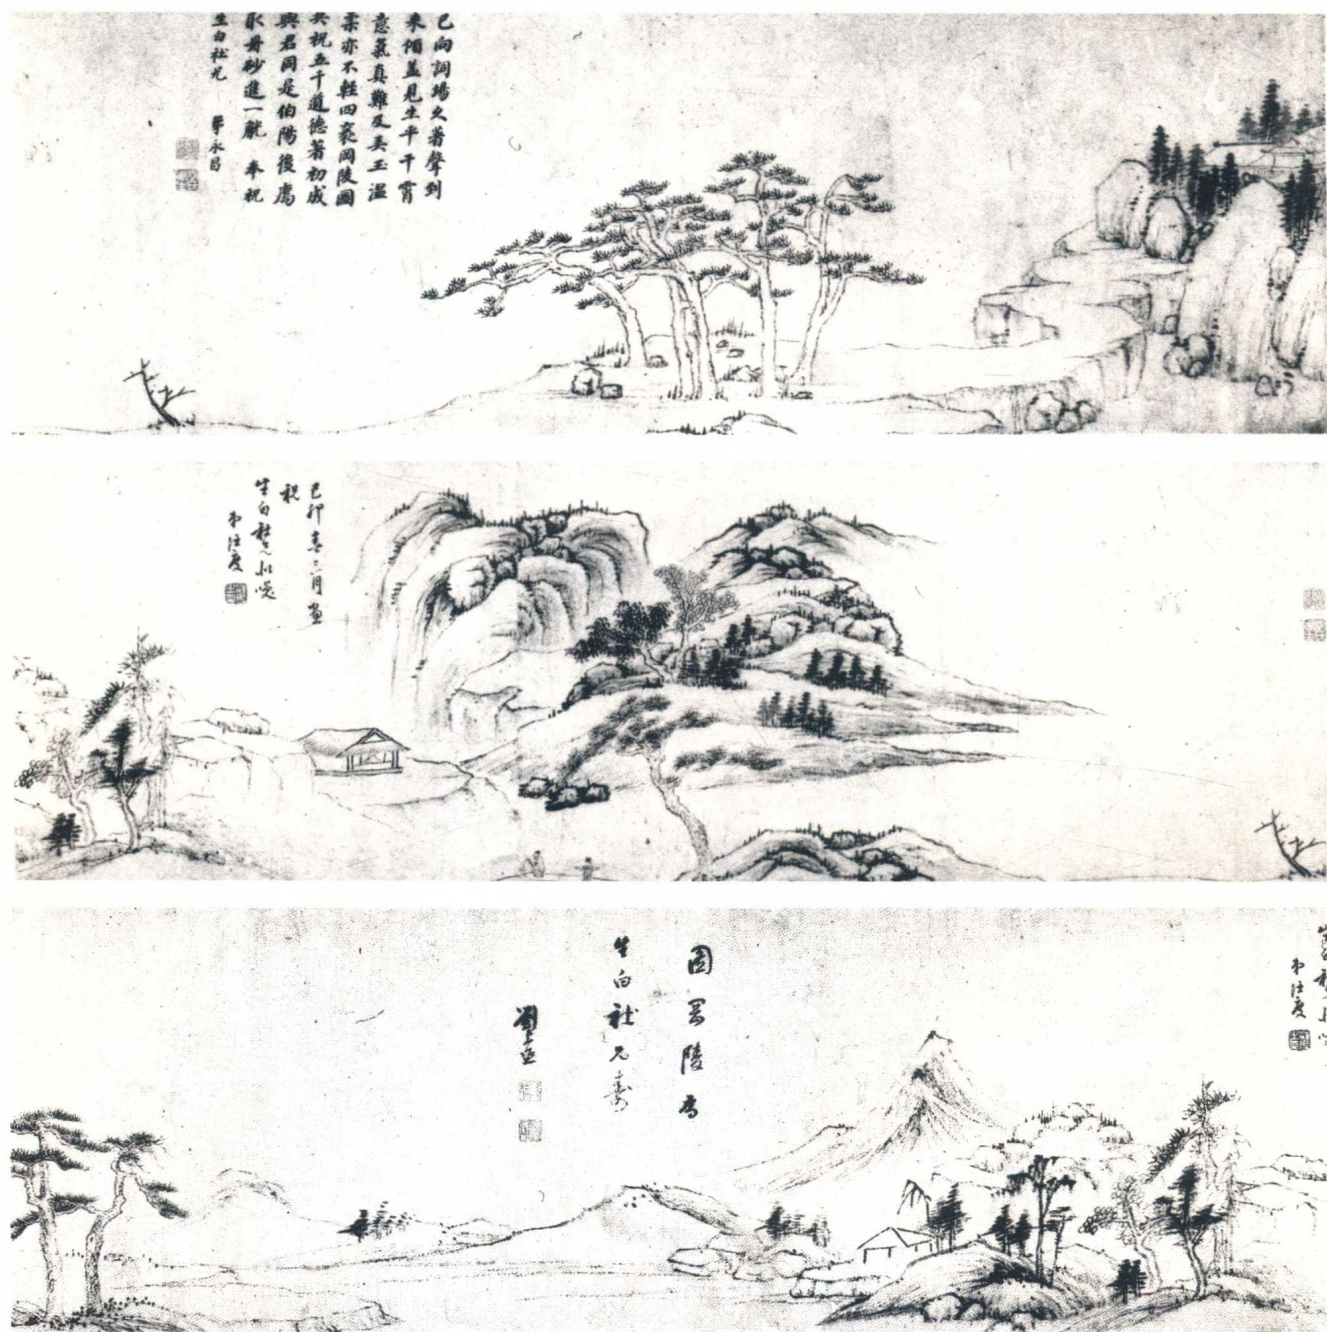 已向詞場久著聲到
來傾蓋見生平干霄
意氣真難及美玉溫
柔亦不輕四袠岡陵圖
共祝五千道德著初成
與君同是伯陽後應
取丹砂進一觥 奉祝
生白社兄 李永昌
己卯春二月畫
祝
生白社兄
弟汪度
弟汪度
圖岡陵為
生白社兄壽
劉上延